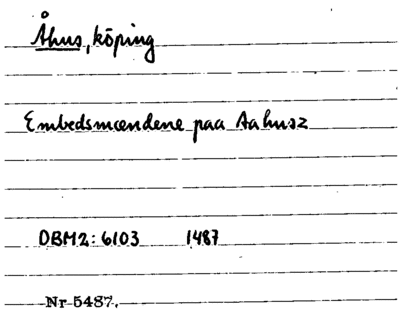 Åhus, köping
Embedsmændene paa Aahusz
DBM2: 6103 1487
Nr 5487.